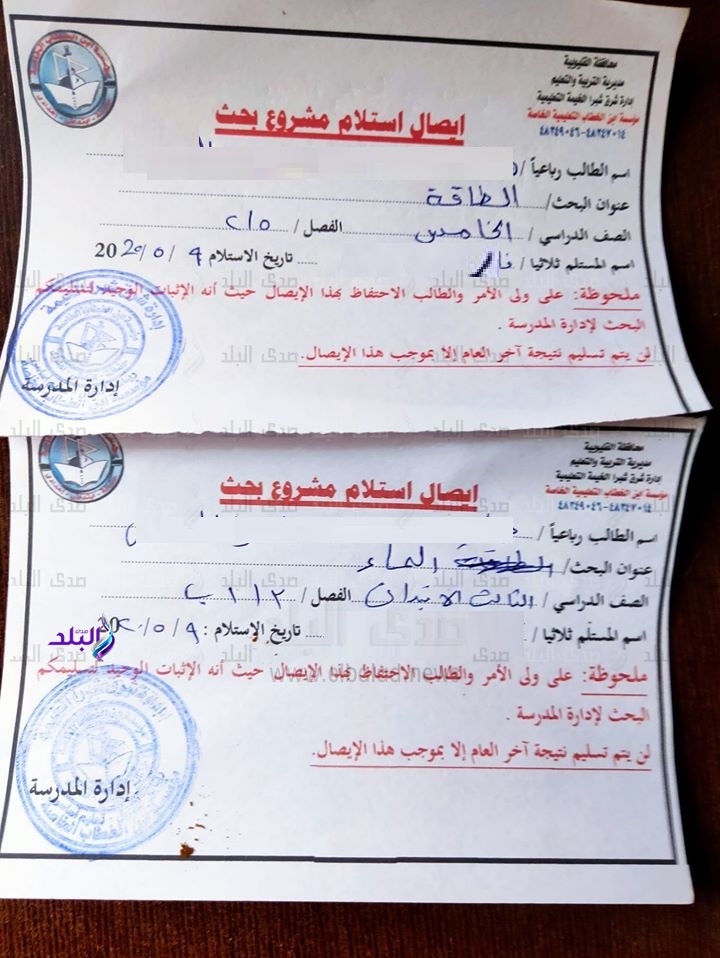 محافظة القليوبية
مديرية التربية والتعليم
إدارة شرق شبرا الخيمة التعليمية
مؤسسة ابن الخطاب التعليمية الخاصة
٤٨٢٤٧٠١٤-٤٨٢٤٩٠٤٦
إيصال استلام مشروع بحث
اسم الطالب رباعياً /
عنوان البحث/ الطاقة
الصف الدراسي / الخامس الفصل /
اسم المستلم ثلاثيا / تاريخ الاستلام ٩ / ٥ / 20٢٠
ملحوظة: على ولى الأمر والطالب الاحتفاظ بهذا الإيصال حيث أنه الإثبات الوحيد لتسليمكم
البحث لإدارة المدرسة .
لن يتم تسليم نتيجة آخر العام إلا بموجب هذا الإيصال.
إدارة المدرسة
صدى البلد
محافظة القليوبية
مديرية التربية والتعليم
إدارة شرق شبرا الخيمة التعليمية
مؤسسة ابن الخطاب التعليمية الخاصة
٤٨٢٤٧٠١٤-٤٨٢٤٩٠٤٦
إيصال استلام مشروع بحث
اسم الطالب رباعياً /
عنوان البحث/ الماء
الصف الدراسي / الثالث الابتدائى الفصل /
اسم المستلم ثلاثيا / تاريخ الإستلام : ٩ / ٥ /
ملحوظة: على ولى الأمر والطالب الاحتفاظ بهذا الإيصال حيث أنه الإثبات الوحيد لتسليمكم
البحث لإدارة المدرسة .
لن يتم تسليم نتيجة آخر العام إلا بموجب هذا الإيصال.
إدارة المدرسة
صدى البلد